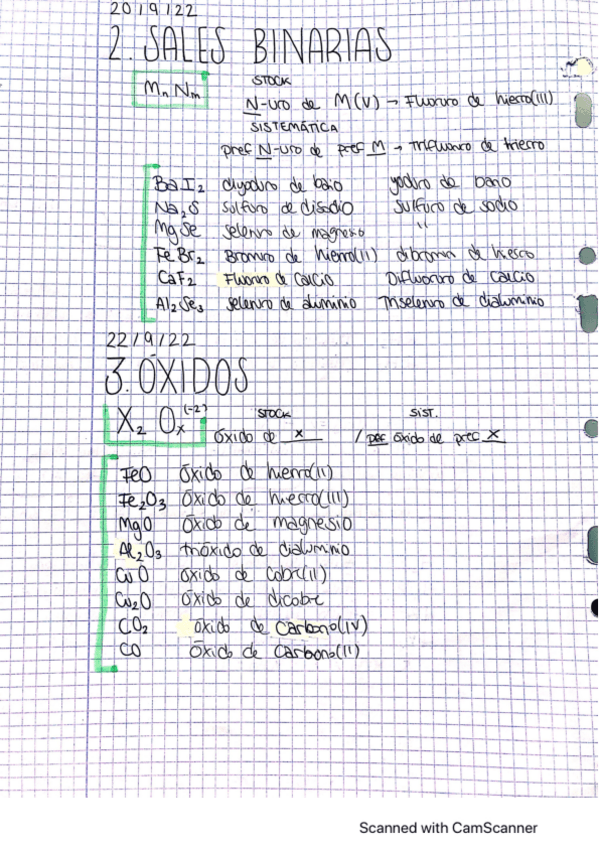 20/9/22
2. SALES BINARIAS
Mn Nm
STOCK
N-uro de M(V) → Fluoruro de hierro(III)
SISTEMÁTICA
pref N-uro de pref M → Trifluoruro de hierro
BaI2 diyoduro de bario yoduro de bario
Na2S sulfuro de disodio sulfuro de sodio
MgSe selenuro de magnesio "
FeBr2 Bromuro de hierro(II) dibromuro de hierro
CaF2 Fluoruro de calcio Difluoruro de calcio
Al2Se3 selenuro de aluminio Triselenuro de dialuminio
22/9/22
3. ÓXIDOS
X2 Ox(-2) STOCK SIST.
óxido de x / pref óxido de pref x
FeO óxido de hierro(II)
Fe2O3 óxido de hierro(III)
MgO óxido de magnesio
Al2O3 trióxido de dialuminio
CuO óxido de cobre(II)
Cu2O óxido de dicobre
CO2 óxido de carbono(IV)
CO óxido de carbono(II)
Scanned with CamScanner